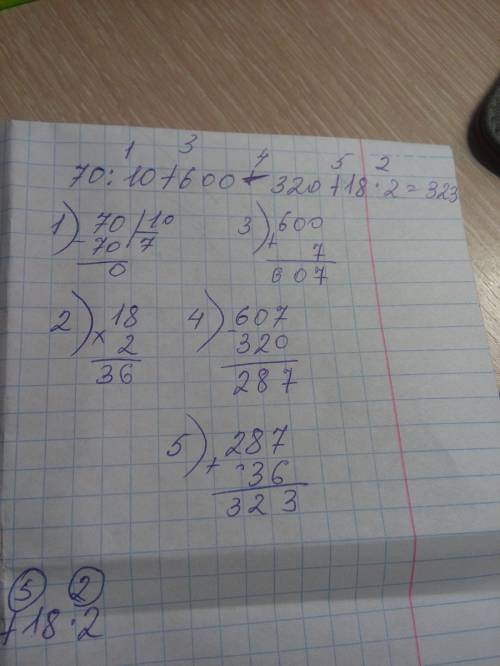 1 3 4 5 2
70:10+600-320+18·2=323
1) 70 | 10
- 70 | 7
0
3) 600
+ 7
607
2) 18
× 2
36
4) 607
- 320
287
5) 287
+ 36
323
5 2
+18·2